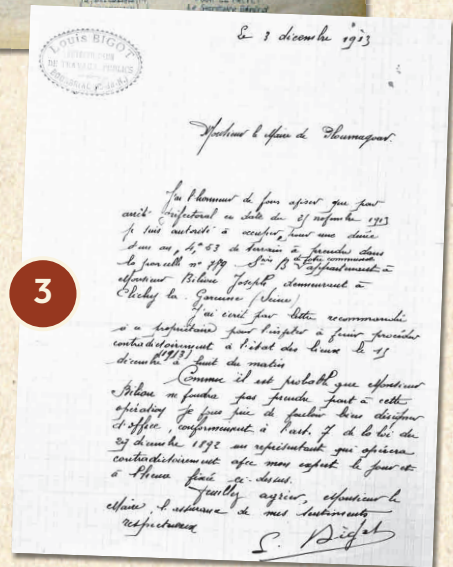 Louis BIGOT
DE TRAVAUX PUBLICS
Le 3 décembre 1913
Monsieur le Maire de Ploumagoar.
J'ai l'honneur de vous aviser que par
arrêté préfectoral en date du 21 novembre 1913
je suis autorisé à occuper, pour une durée
d'un an, 4,ª 53 de terrain à prendre dans
la parcelle nº 789 Son B de votre commune appartenant à
Monsieur Béliou Joseph demeurant à
Clichy la Garenne (Seine)
J'ai écrit par lettre recommandée
à ce propriétaire pour l'inviter à venir procéder
contradictoirement à l'état des lieux le 15
décembre (1913) à huit du matin
Comme il est probable que Monsieur
Béliou ne voudra pas prendre part à cette
opération je vous prie de vouloir bien désigner
d'office, conformément à l'art. 7 de la loi du
29 décembre 1892 un représentant qui opèrera
contradictoirement avec mon expert le jour et
à l'heure fixée ci-dessus.
Veuillez agréer, Monsieur le
Maire, l'assurance de mes sentiments
respectueux
L. Bigot
3